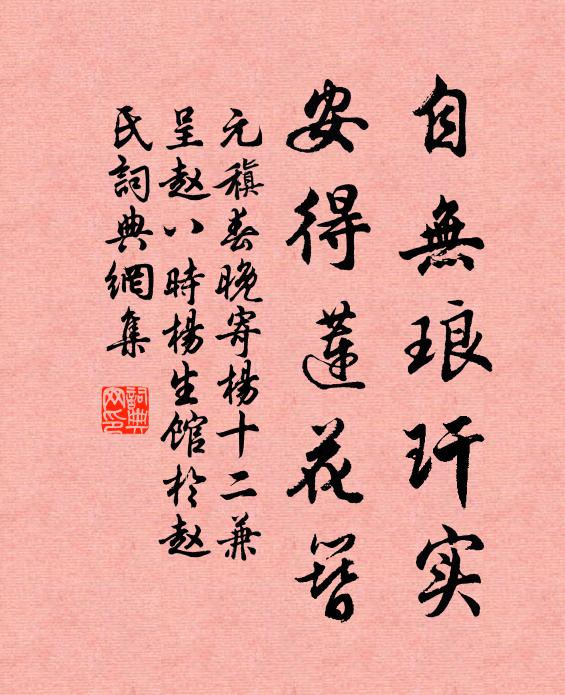 自無琅玕实
安得蓮花簪
元稹春晚寄楊十二兼
呈赵八時楊生館於赵
氏詞典網集
詞典
网印